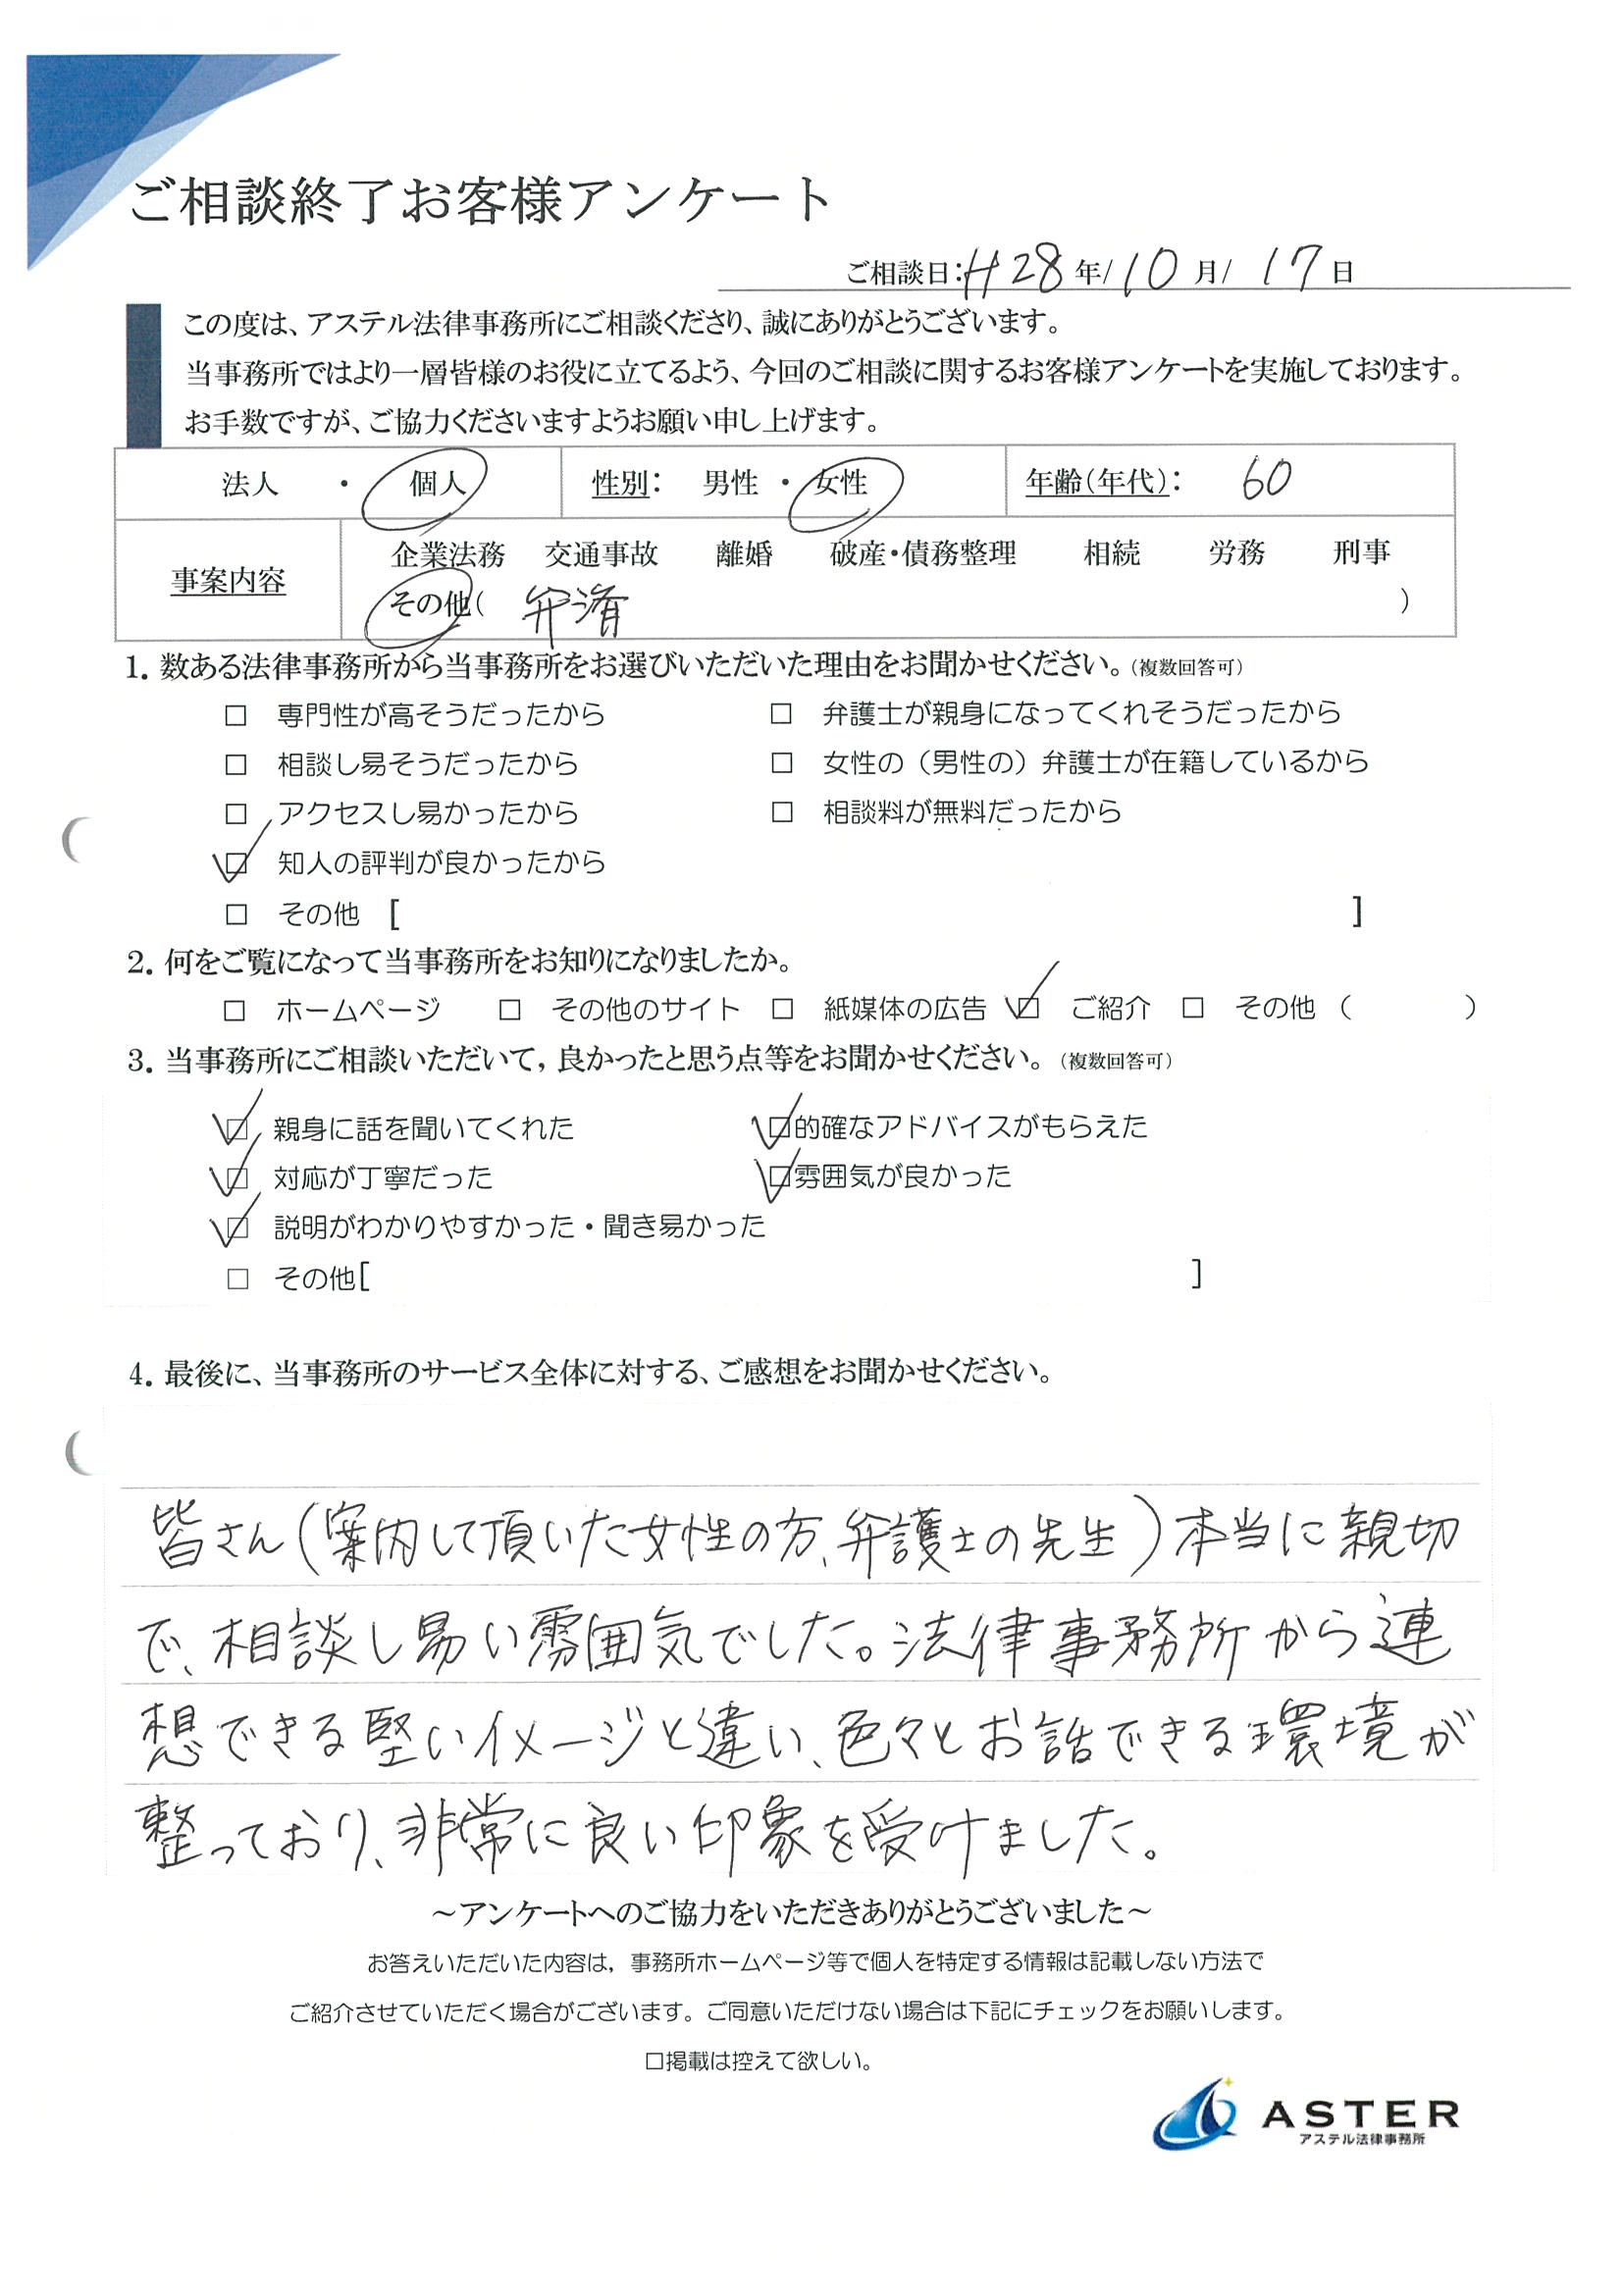 ご相談終了お客様アンケート
ご相談日:H28年/10月/17日
この度は、アステル法律事務所にご相談くださり、誠にありがとうございます。
当事務所ではより一層皆様のお役に立てるよう、今回のご相談に関するお客様アンケートを実施しております。
お手数ですが、ご協力くださいますようお願い申し上げます。
法人 ・ 個人 性別: 男性 ・ 女性 年齢(年代): 60
事案内容 企業法務 交通事故 離婚 破産・債務整理 相続 労務 刑事
その他( 弁済 )
1. 数ある法律事務所から当事務所をお選びいただいた理由をお聞かせください。(複数回答可)
□ 専門性が高そうだったから □ 弁護士が親身になってくれそうだったから
□ 相談し易そうだったから □ 女性の(男性の)弁護士が在籍しているから
□ アクセスし易かったから □ 相談料が無料だったから
☑ 知人の評判が良かったから
□ その他 [ ]
2. 何をご覧になって当事務所をお知りになりましたか。
□ ホームページ □ その他のサイト □ 紙媒体の広告 ☑ ご紹介 □ その他 ( )
3. 当事務所にご相談いただいて,良かったと思う点等をお聞かせください。(複数回答可)
☑ 親身に話を聞いてくれた ☑的確なアドバイスがもらえた
☑ 対応が丁寧だった ☑雰囲気が良かった
☑ 説明がわかりやすかった・聞き易かった
□ その他[ ]
4. 最後に、当事務所のサービス全体に対する、ご感想をお聞かせください。
皆さん(案内して頂いた女性の方、弁護士の先生)本当に親切
で、相談し易い雰囲気でした。法律事務所から連
想できる堅いイメージと違い、色々とお話できる環境が
整っており、非常に良い印象を受けました。
~アンケートへのご協力をいただきありがとうございました~
お答えいただいた内容は,事務所ホームページ等で個人を特定する情報は記載しない方法で
ご紹介させていただく場合がございます。ご同意いただけない場合は下記にチェックをお願いします。
□掲載は控えて欲しい。
ASTER
アステル法律事務所